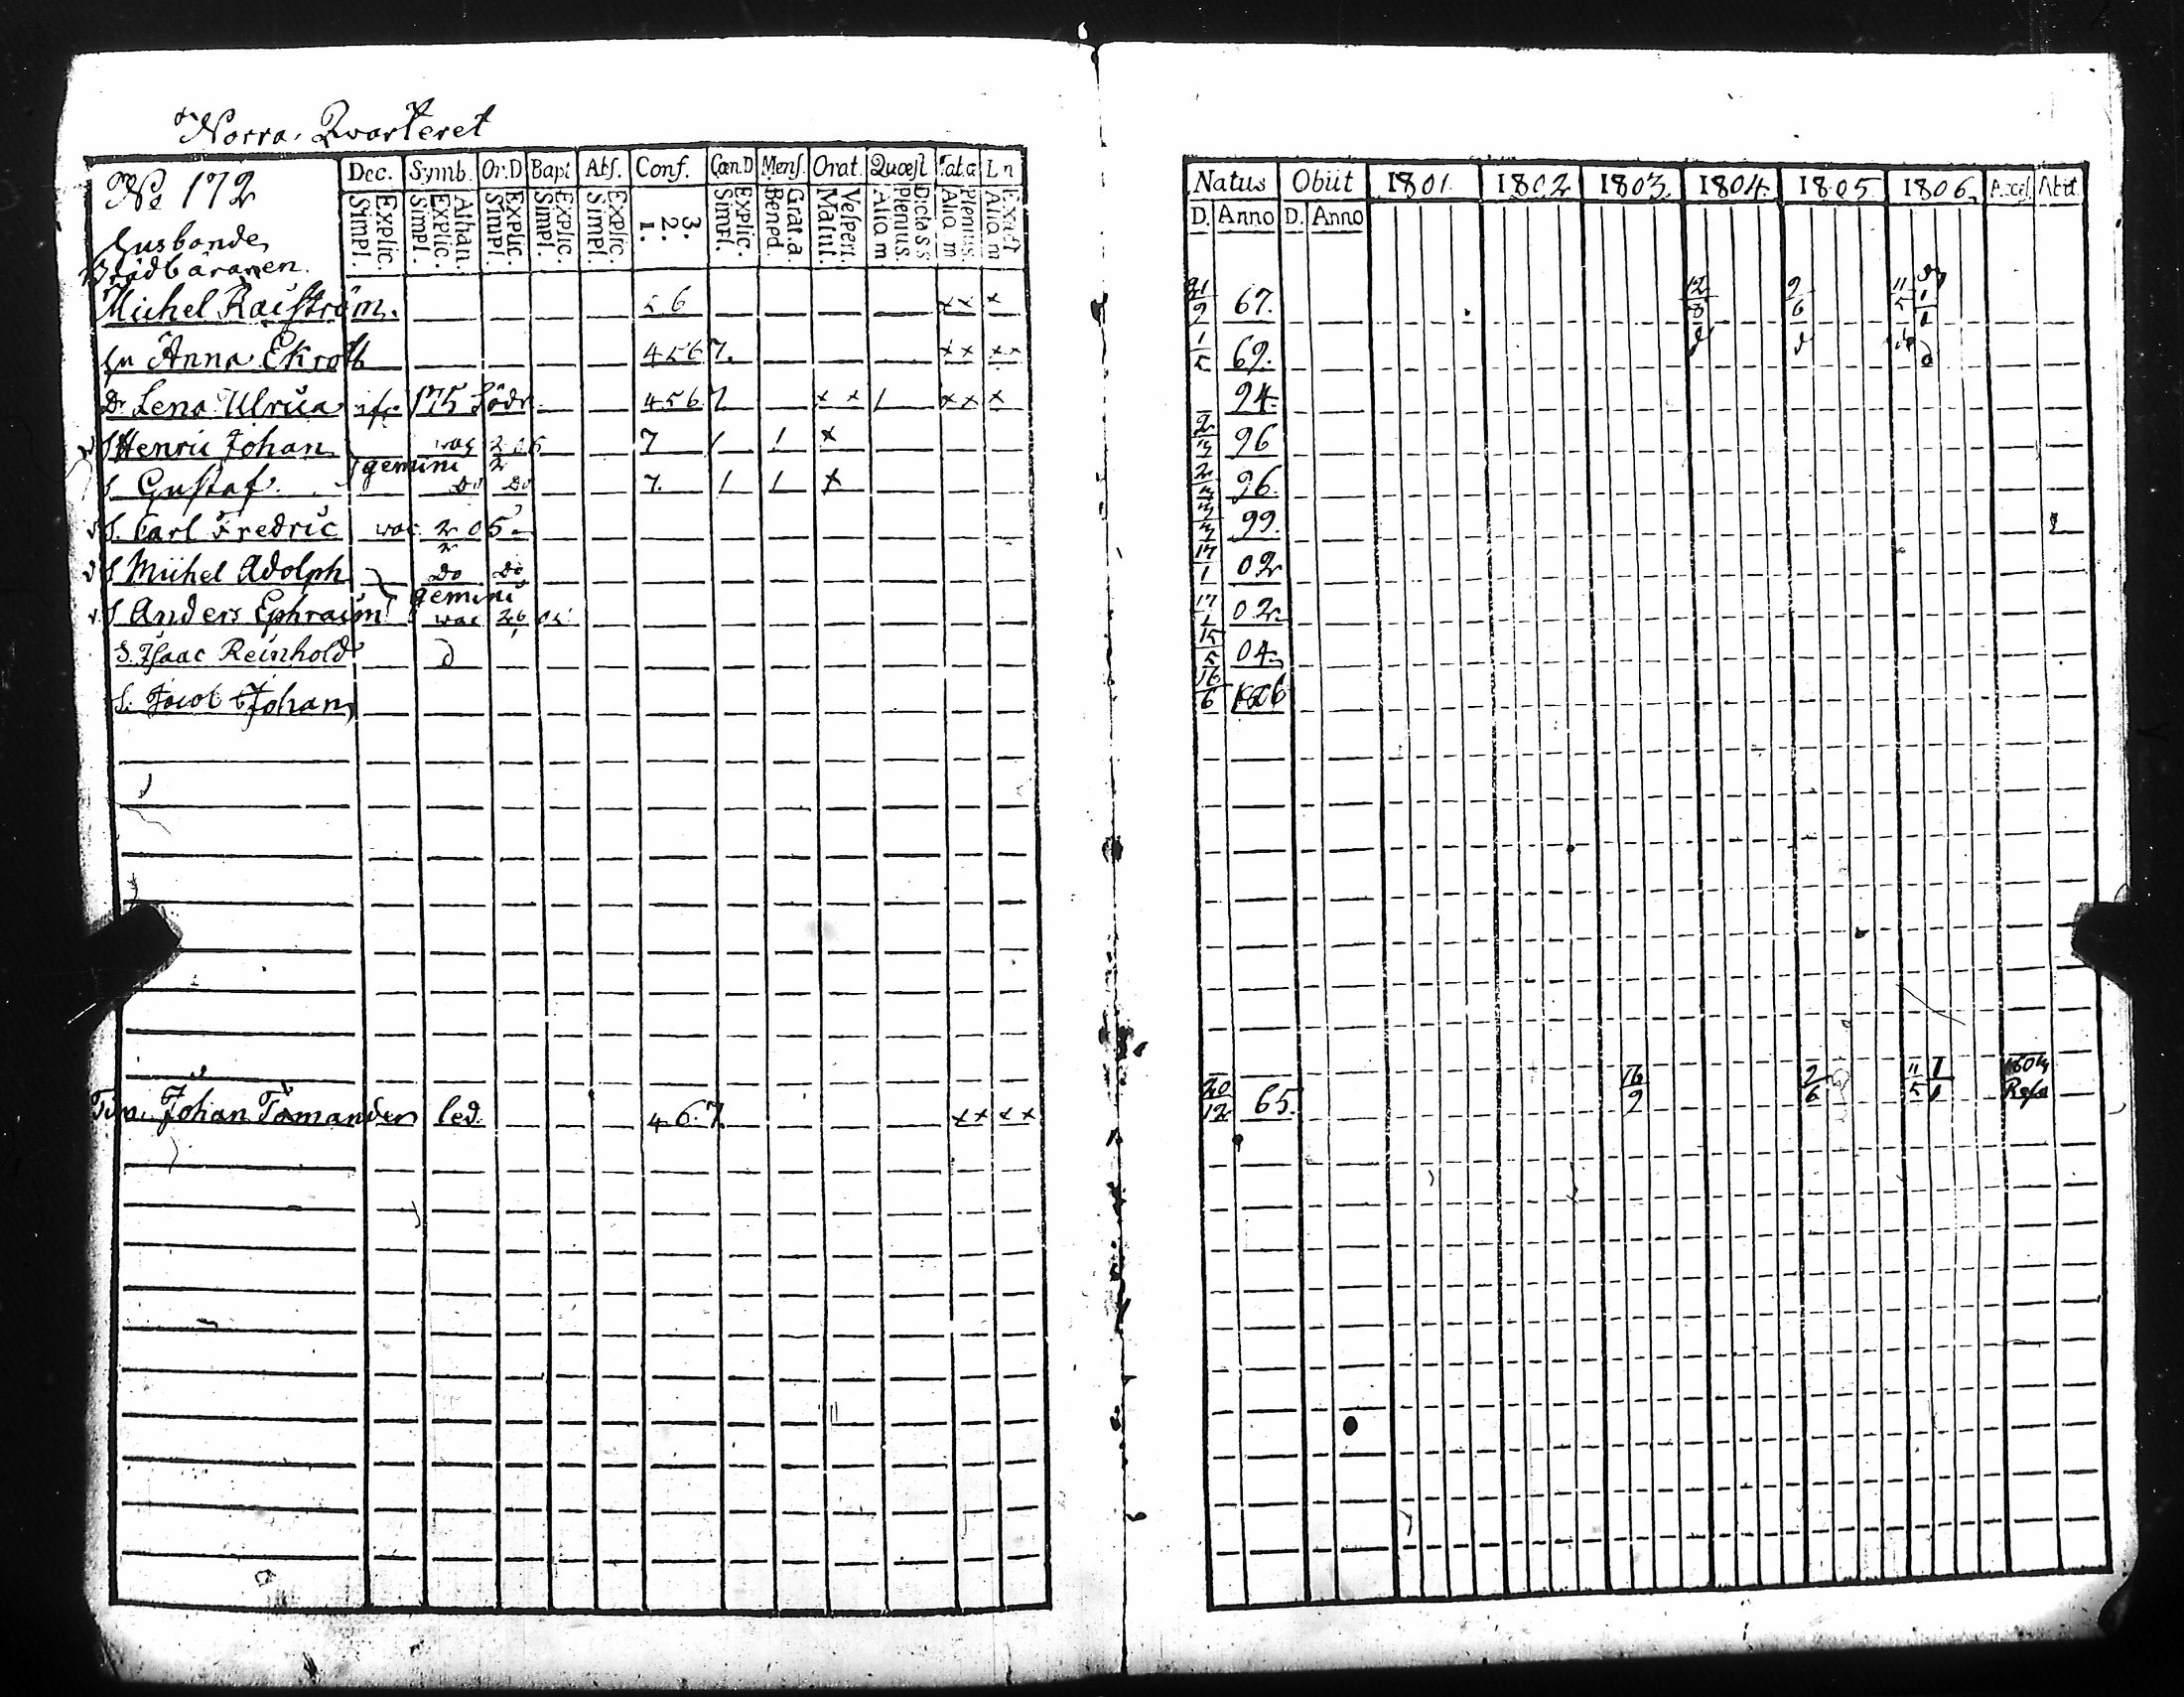 Norra Qvarteret
No 172
Dec. Symb. Or.D Bapt Abs. Conf. Cæn.D Mens. Orat. Quæst Tab.œ L n
Explic. Simpl. Athan. Explic. Simpl. Explic. Simpl. Explic. Simpl. Explic. Simpl. 3. 2. 1. Explic. Simpl. Grat.a Bened. Vespert. Matut. Dicta s s Plenius. Aliq m Plenius. Aliq m Exact Aliq m
Natus Obiit 1801. 1802 1803. 1804. 1805. 1806. Accef. Abiit
D. Anno D. Anno
Husbonde,
Brädbäraren.
Michel Raiström. 5 6 x x x 21/9 67. 12/8 9/6 11/5
hu Anna Ekroth 4 5 6 7. x x x x 1/5 69.
Dr Lena Ulrica 175 Södr 4 5 6 7 x x 1 x x x 94.
S Henric Johan vac 2 05 7 1 1 x 2/3 96
gemini 2
S Gustaf. Do Do 7. 1 1 x 2/3 96.
S. Carl Fredric vac 2 05. 3/3 99.
2
S Michel Adolph Do Do 17/1 02
gemini
S Anders Ephraim vac 26 05 17/1 02.
S. Isaac Reinhold d 15/5 04.
S. Jacob Johan 16/6 1806
Johan Tamander led. 4 6. 7 x x x x 20/12 65. 16/9 2/6 11/5